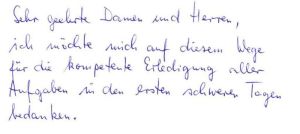 Sehr geehrte Damen und Herren,
ich möchte mich auf diesem Wege
für die kompetente Erledigung aller
Aufgaben in den ersten schweren Tagen
bedanken.